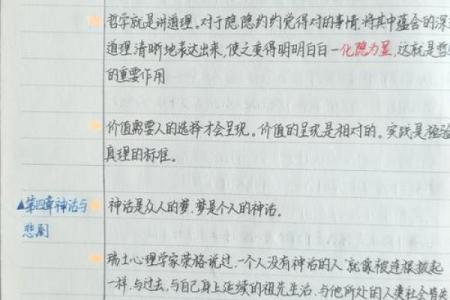 哲学就是讲道理。对于隐隐约约觉得对的事情,将其中蕴含的深
道理清晰地表达出来,使之变得明明白白—化隐为显,这就是哲
的重要作用
价值需要人的选择才会呈现。价值的呈现是相对的。实践是检验
真理的标准。
▲第四章神话与
悲剧
神话是众人的梦,梦是个人的神话。
瑞士心理学家荣格说过,一个人没有神话的人"就像被连根拔起
一样,与过去,与自己身上延续的祖先生活,与他所处的人类社会